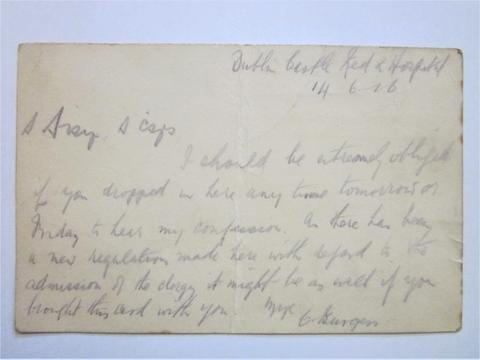 Dublin Castle Red X Hospital
14-6-16
I should be extremely obliged
if you dropped in here any time tomorrow or
Friday to hear my confession. As there has been
a new regulation made here with regard to the
admission of the clergy it might be as well if you
brought this card with you.
Burgess